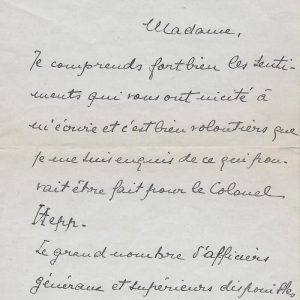 Madame,
Je comprends fort bien les senti-
ments qui vous ont incité à
m'écrire et c'est bien volontiers que
je me suis enquis de ce qui pou-
vait être fait pour le Colonel
Hepp.
Le grand nombre d'officiers
généraux et supérieurs disponibles